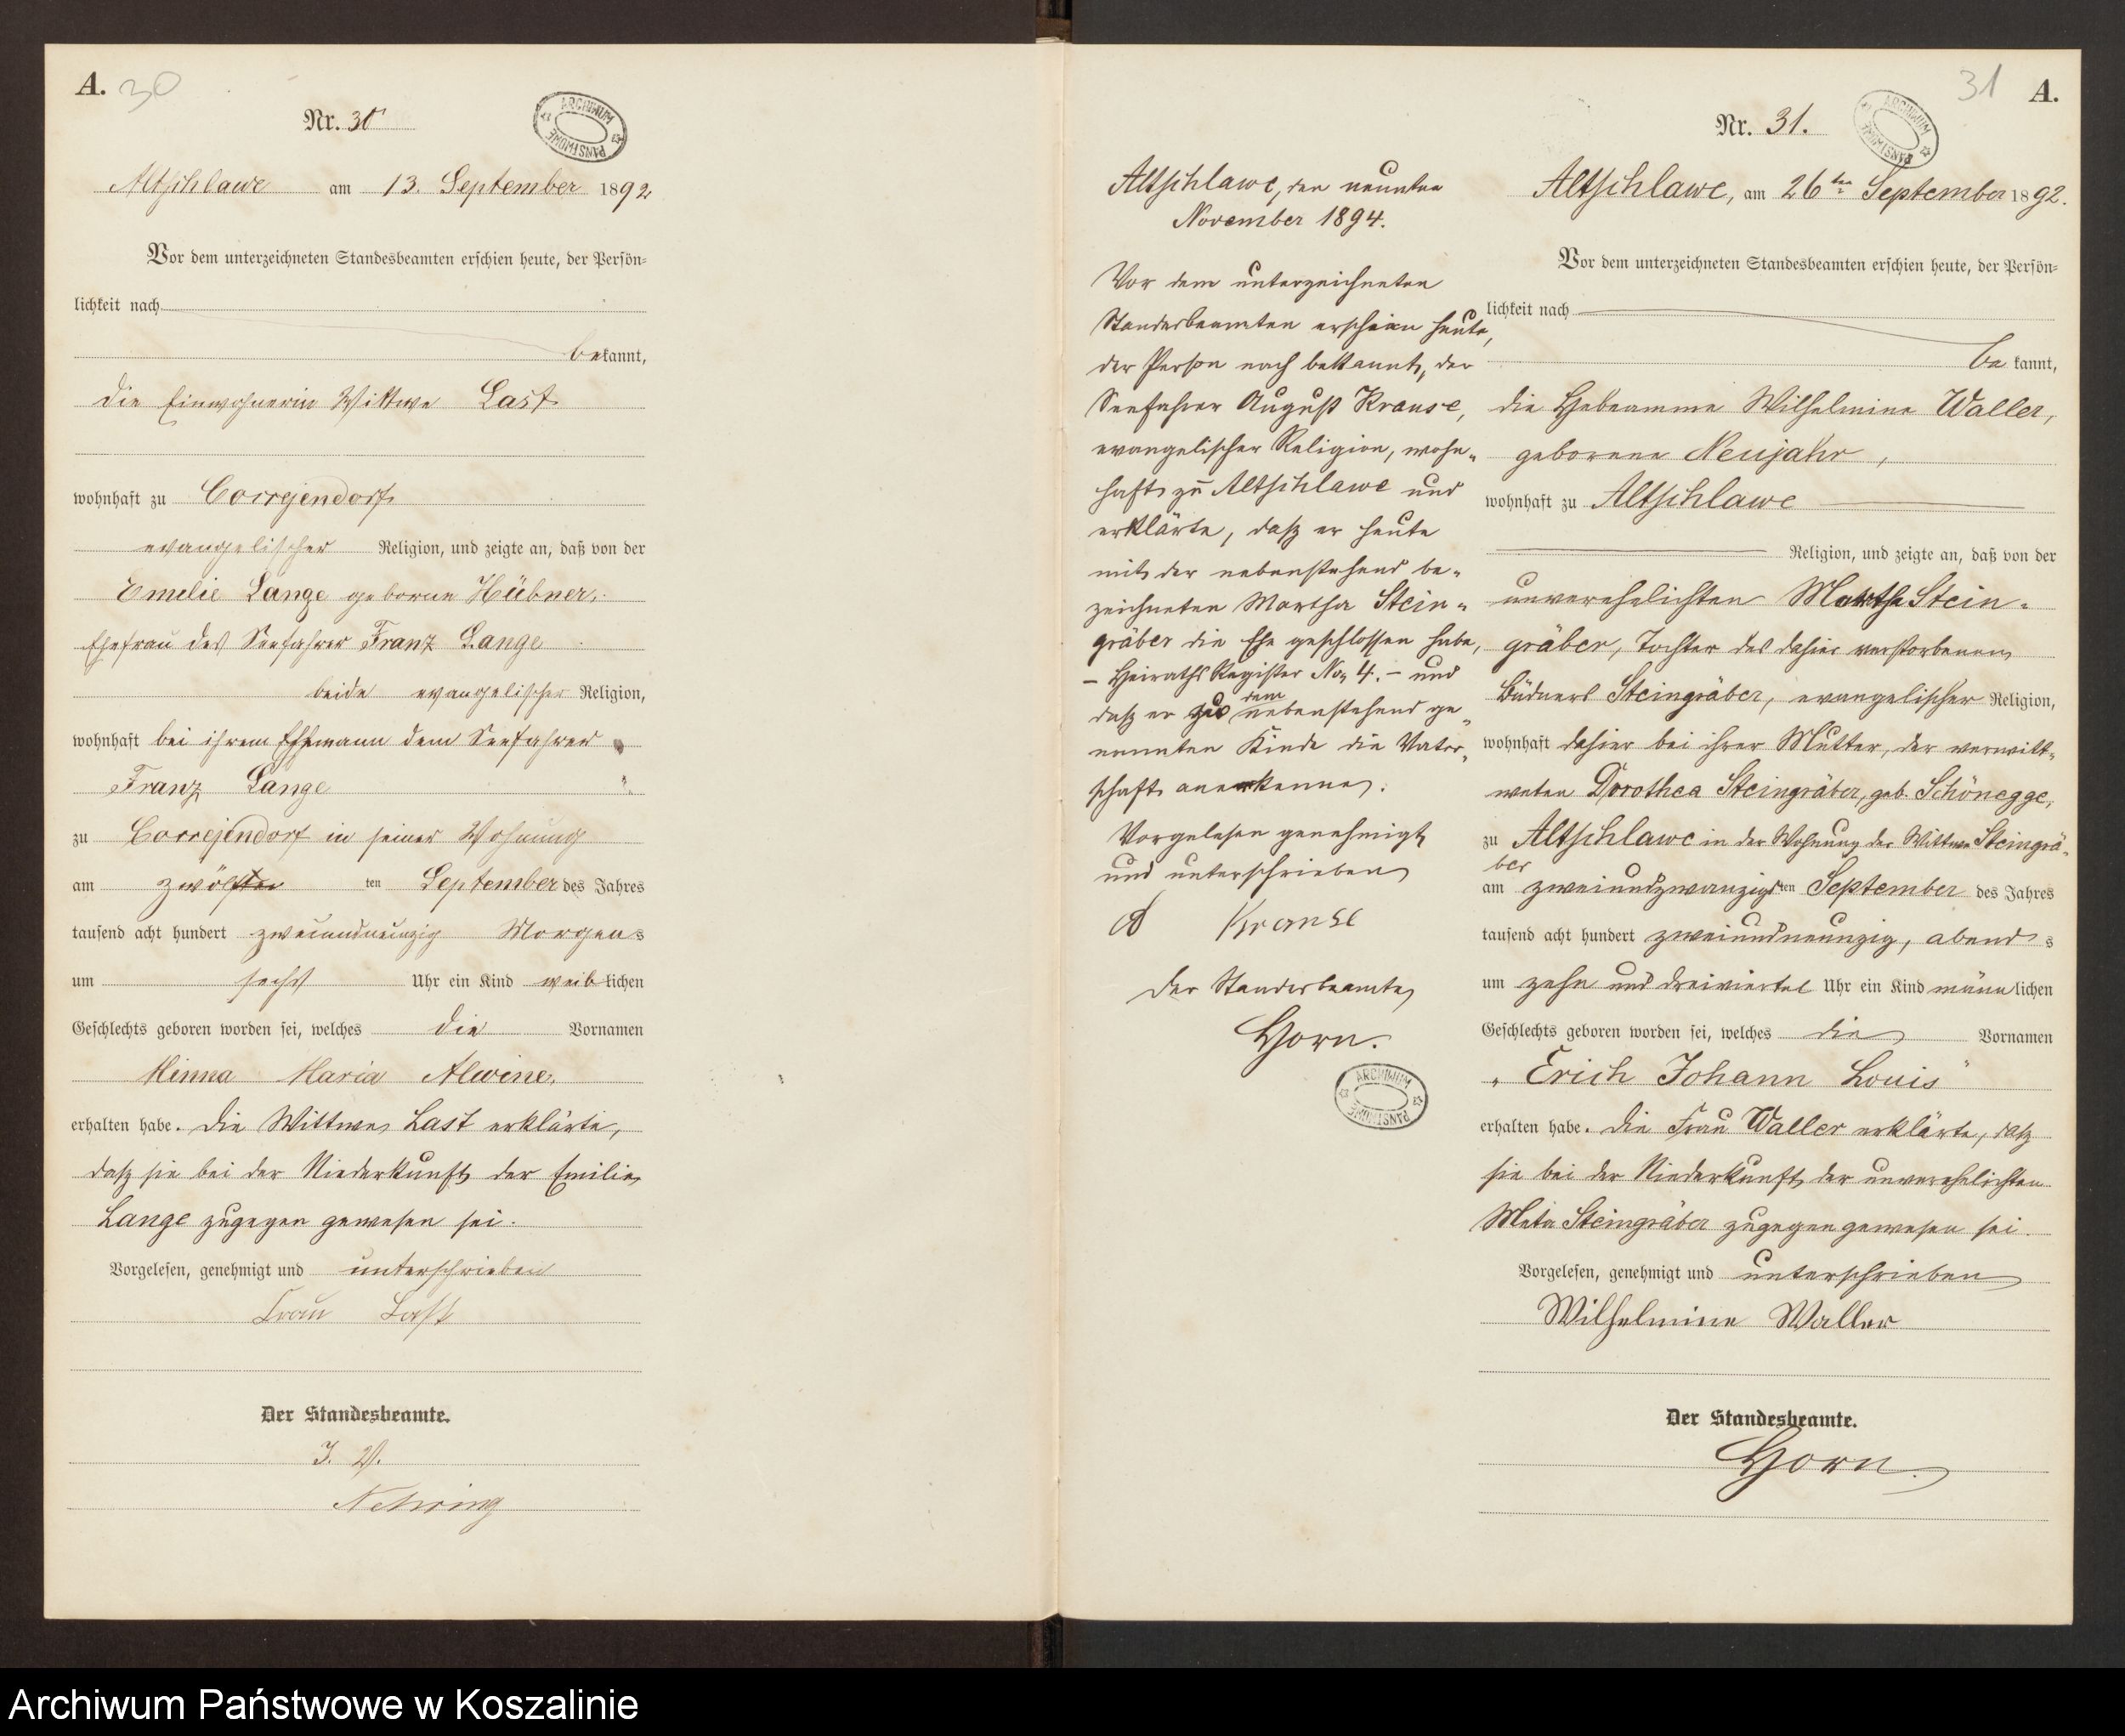 A. 30
Nr. 30
ARCHIWUM PAŃSTWOWE
Altschlawe am 13. September 1892
Vor dem unterzeichneten Standesbeamten erschien heute, der Persön-
lichkeit nach
bekannt,
die Einwohnerin Wittwe Last
wohnhaft zu Correjendorf
evangelischer Religion, und zeigte an, daß von der
Emelie Lange geborne Hübner,
Ehefrau des Seefahrer Franz Lange
beide evangelischer Religion,
wohnhaft bei ihrem Ehemann dem Seefahrer
Franz Lange
zu Correjendorf in seiner Wohnung
am zwölften ten September des Jahres
tausend acht hundert zweiundneunzig Morgens
um sechs Uhr ein Kind weiblichen
Geschlechts geboren worden sei, welches die Vornamen
Minna Maria Alwine,
erhalten habe. Die Wittwe Last erklärte,
daß sie bei der Niederkunft der Emilie
Lange zugegen gewesen sei.
Vorgelesen, genehmigt und unterschrieben
Frau Last
Der Standesbeamte.
I. V.
Nehring
Altschlawe, den neunten
November 1894.
Vor dem unterzeichneten
Standesbeamten erschien heute,
der Person nach bekannt, der
Seefahrer August Krause,
evangelischer Religion, wohn-
haft zu Altschlawe und
erklärte, daß er heute
mit der nebenstehend be-
zeichneten Martha Stein-
gräber die Ehe geschlossen habe,
– Heiraths Register No. 4. – und
daß er dem nebenstehend ge-
nannten Kinde die Vater-
schaft anerkenne.
Vorgelesen genehmigt
und unterschrieben
A Krause
Der Standesbeamte
Horn.
ARCHIWUM PAŃSTWOWE
31 A.
Nr. 31.
ARCHIWUM PAŃSTWOWE
Altschlawe, am 26ten September 1892.
Vor dem unterzeichneten Standesbeamten erschien heute, der Persön-
lichkeit nach
be kannt,
die Hebeamme Wilhelmine Waller,
geborene Neujahr,
wohnhaft zu Altschlawe
Religion, und zeigte an, daß von der
unverehelichten Martha Stein-
gräber, Tochter des dahier verstorbenen
Büdners Steingräber, evangelischer Religion,
wohnhaft dahier bei ihrer Mutter, der verwitt-
weten Dorothea Steingräber, geb. Schönegge,
zu Altschlawe in der Wohnung der Wittwe Steingrä-
ber
am zweiundzwanzigsten September des Jahres
tausend acht hundert zweiundneunzig, abends
um zehn und dreiviertel Uhr ein Kind männlichen
Geschlechts geboren worden sei, welches die Vornamen
„Erich Johann Louis"
erhalten habe. Die Frau Waller erklärte, daß
sie bei der Niederkunft der unverehelichten
Meta Steingräber zugegen gewesen sei.
Vorgelesen, genehmigt und unterschrieben
Wilhelmine Waller
Der Standesbeamte.
Horn.
Archiwum Państwowe w Koszalinie